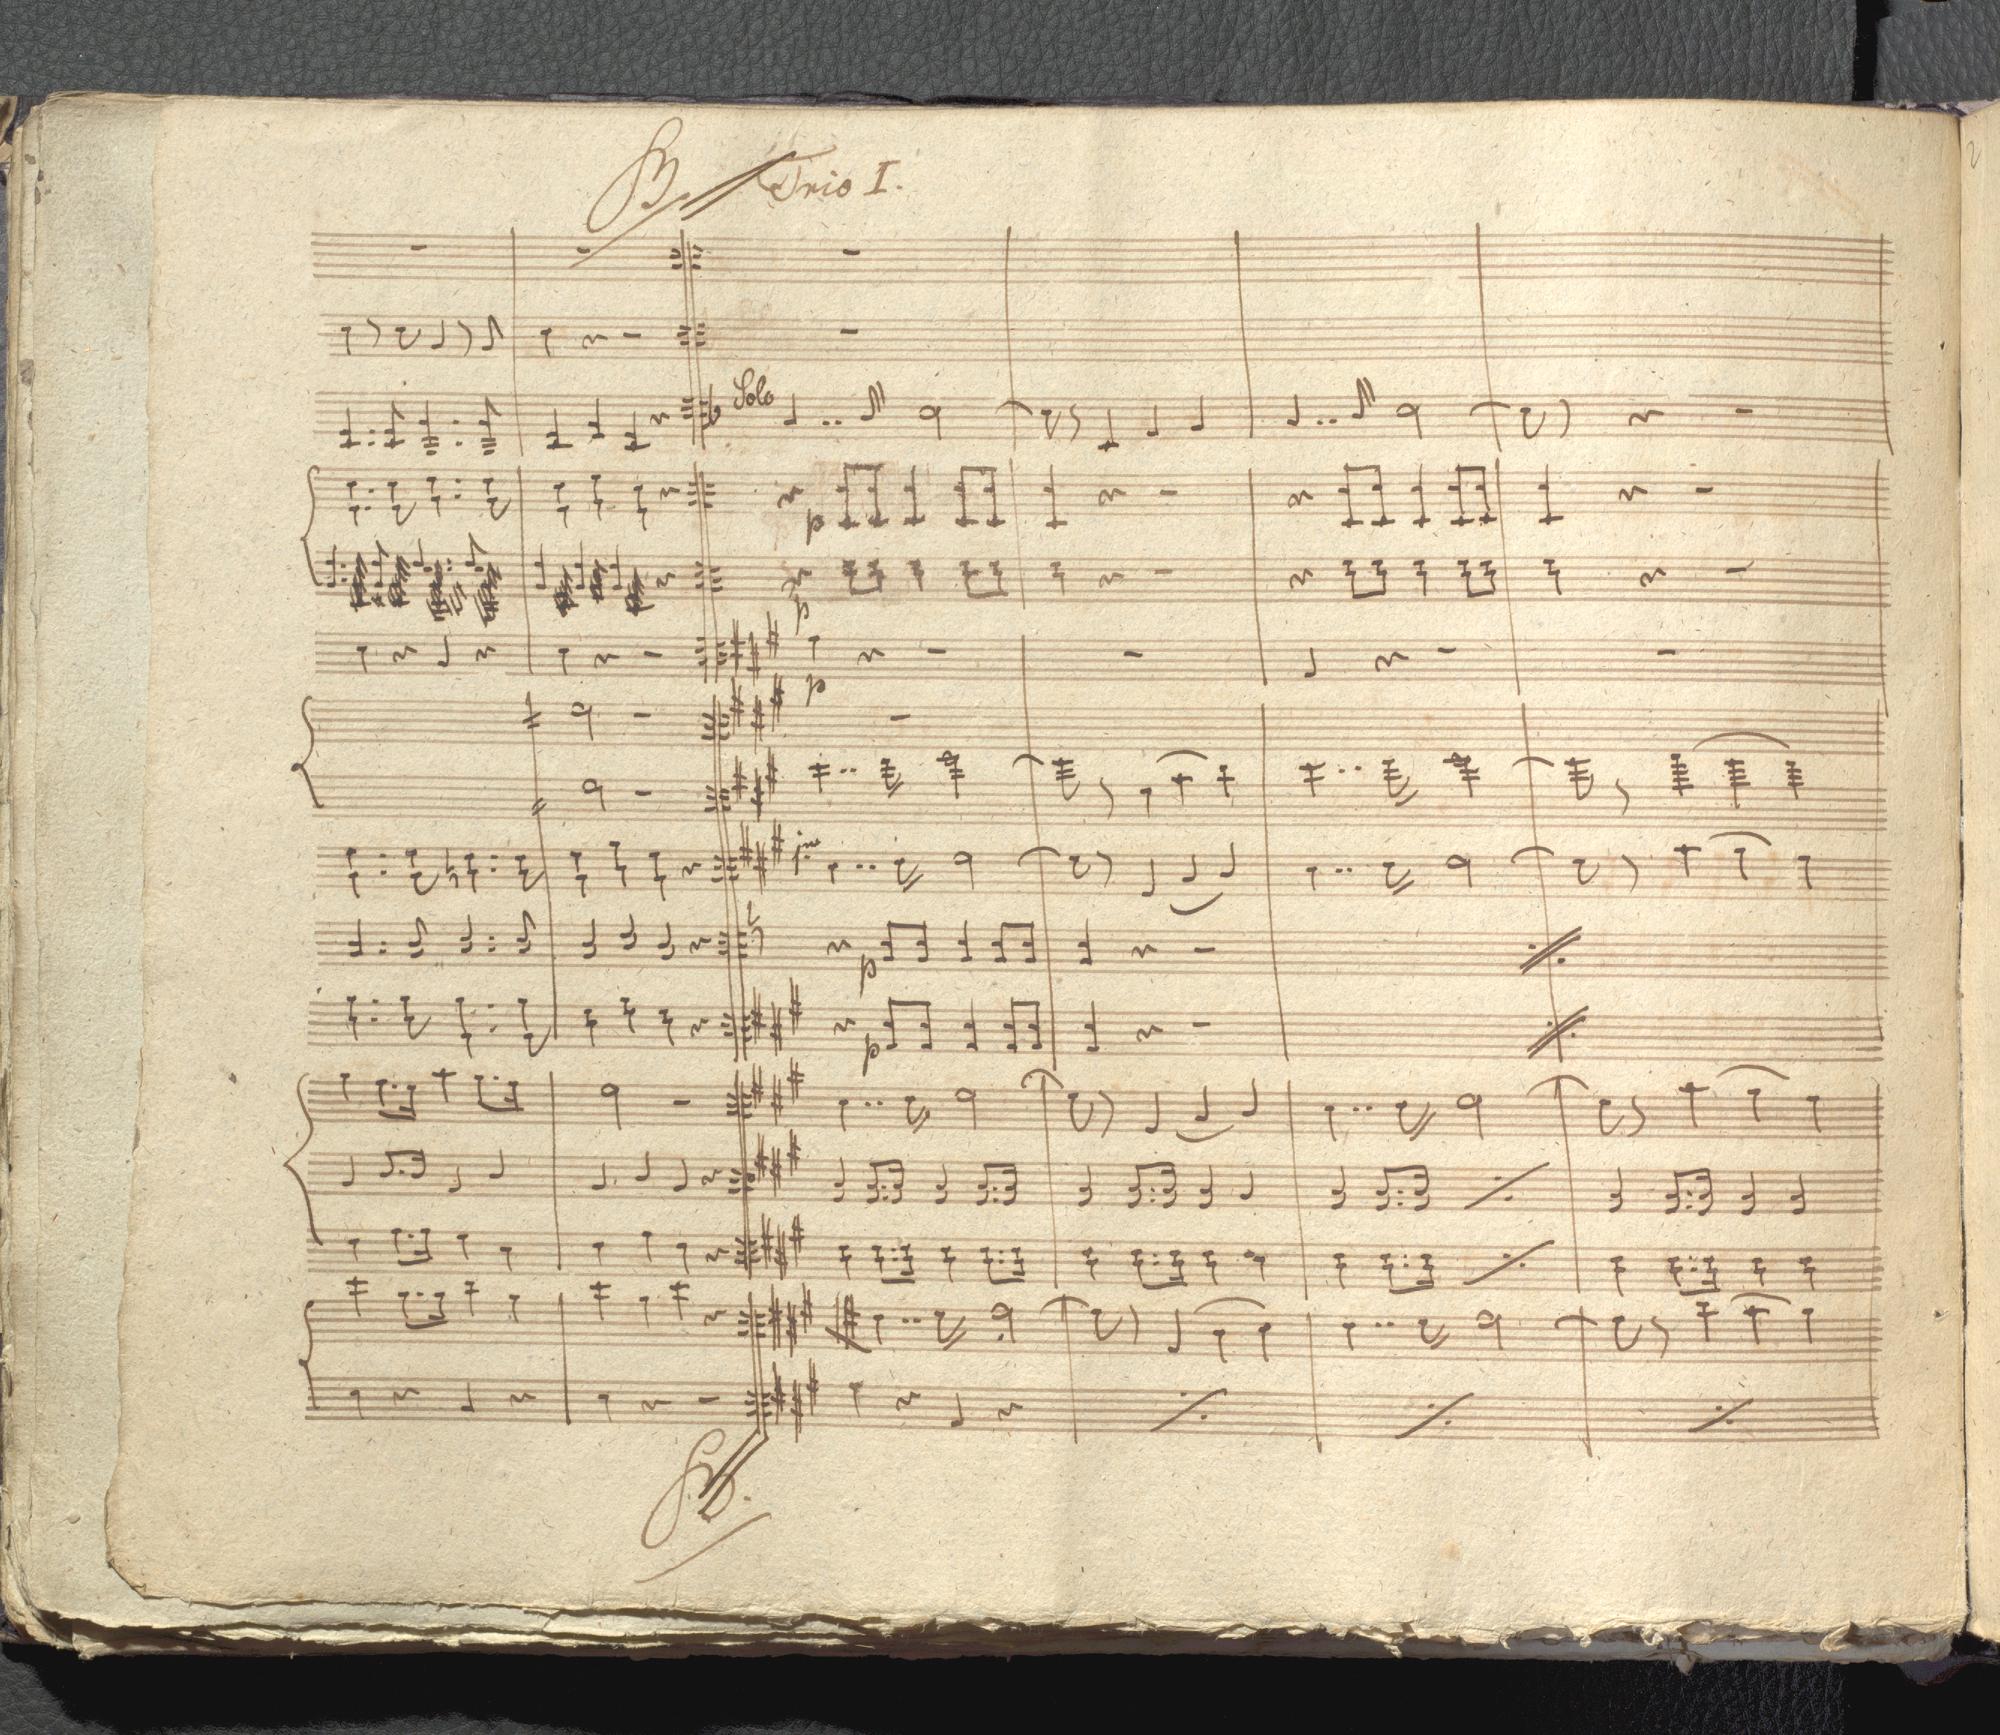 B. Trio I.
Solo
p
p
p
p
p
B.